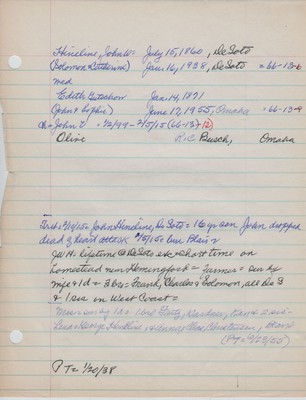 Hineline, John W. July 15, 1860, DeSoto
(Solomon & Catharine) Jan. 16, 1938, DeSoto = 66-13-6
md
Edith Gutschow Jan. 14, 1871
(John & Sophie) June 17, 1955, Omaha = 66-13-9
Ch = John V = 1/2/99 - 2/5/15 (66-13-12)
Olive Busch, Omaha
2/19/15 = John Hineline, DeSoto = 16 yr son John dropped
dead of heart attack 2/5/15 = bur Blair =
JWH: lifetime @ DeSoto exc short time on
homestead near Hemingford = Farmer = sur by
wife & 1 d = 3 bros = Frank, Charles & Solomon, all De S
& 1 sis on West Coast =
Mrs = sur by 1 d = 1 bro
George
(P 6/23/55)
P T = 1/20/38